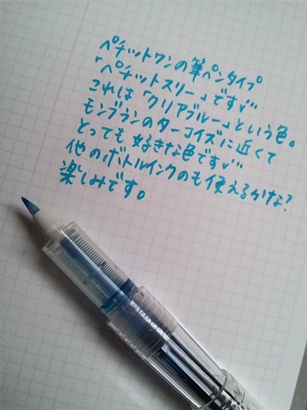 ペチットワンの筆ペンタイプ
「ペチットスリー」です!!
これは「クリアブルー」という色。
モンブランのターコイズに近くて
とっても好きな色です!!
他のボトルインクのも使えるかな?
楽しみです。